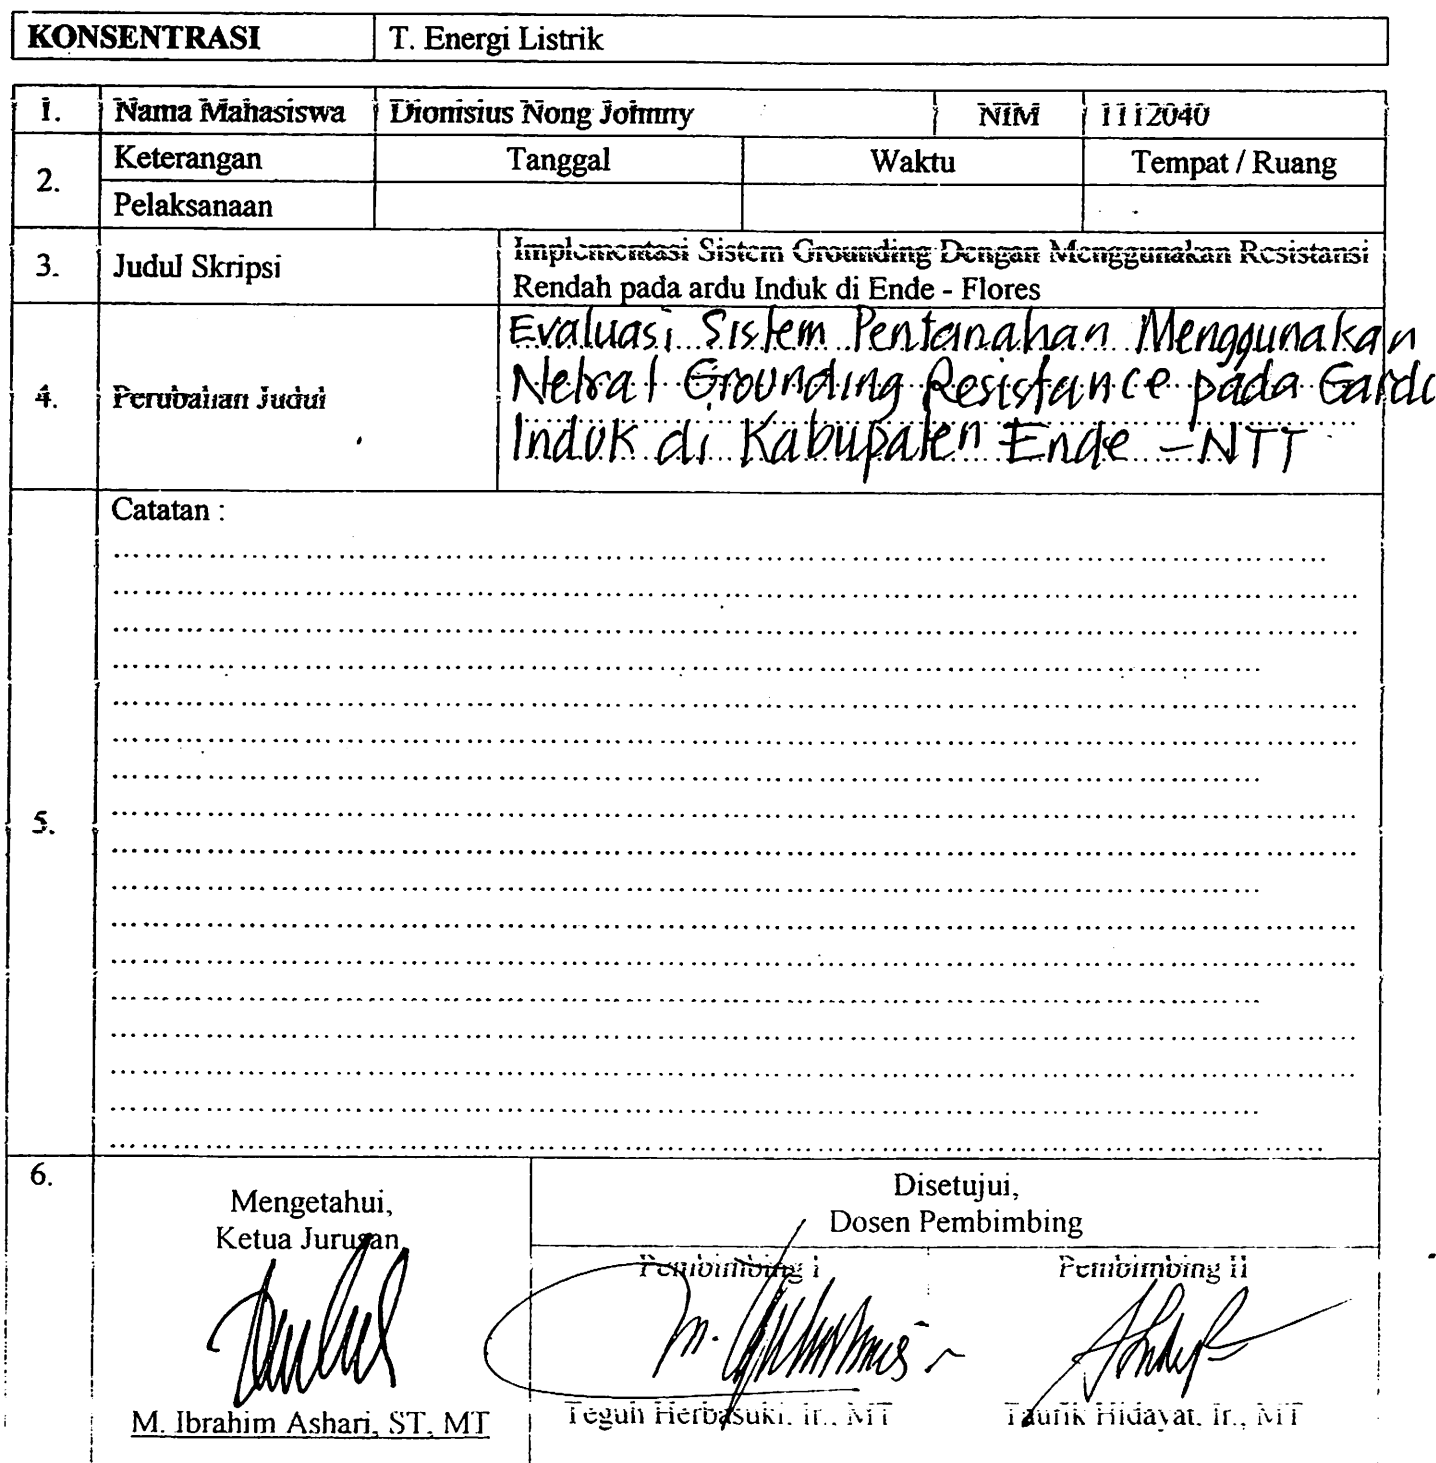 KONSENTRASI T. Energi Listrik
1. Nama Mahasiswa Dionisius Nong Johnny NIM 1112040
2. Keterangan Tanggal Waktu Tempat / Ruang
Pelaksanaan
3. Judul Skripsi Implementasi Sistem Grounding Dengan Menggunakan Resistansi
Rendah pada ardu Induk di Ende - Flores
4. Perubahan Judul Evaluasi Sistem Pentanahan Menggunakan
Netral Grounding Resistance pada Gardu
Induk di Kabupaten Ende - NTT
5. Catatan :
6. Mengetahui,
Ketua Jurusan
Disetujui,
Dosen Pembimbing
Pembimbing I Pembimbing II
M. Ibrahim Ashari, ST, MT Teguh Herbasuki, Ir., MT Taufik Hidayat, Ir., MT